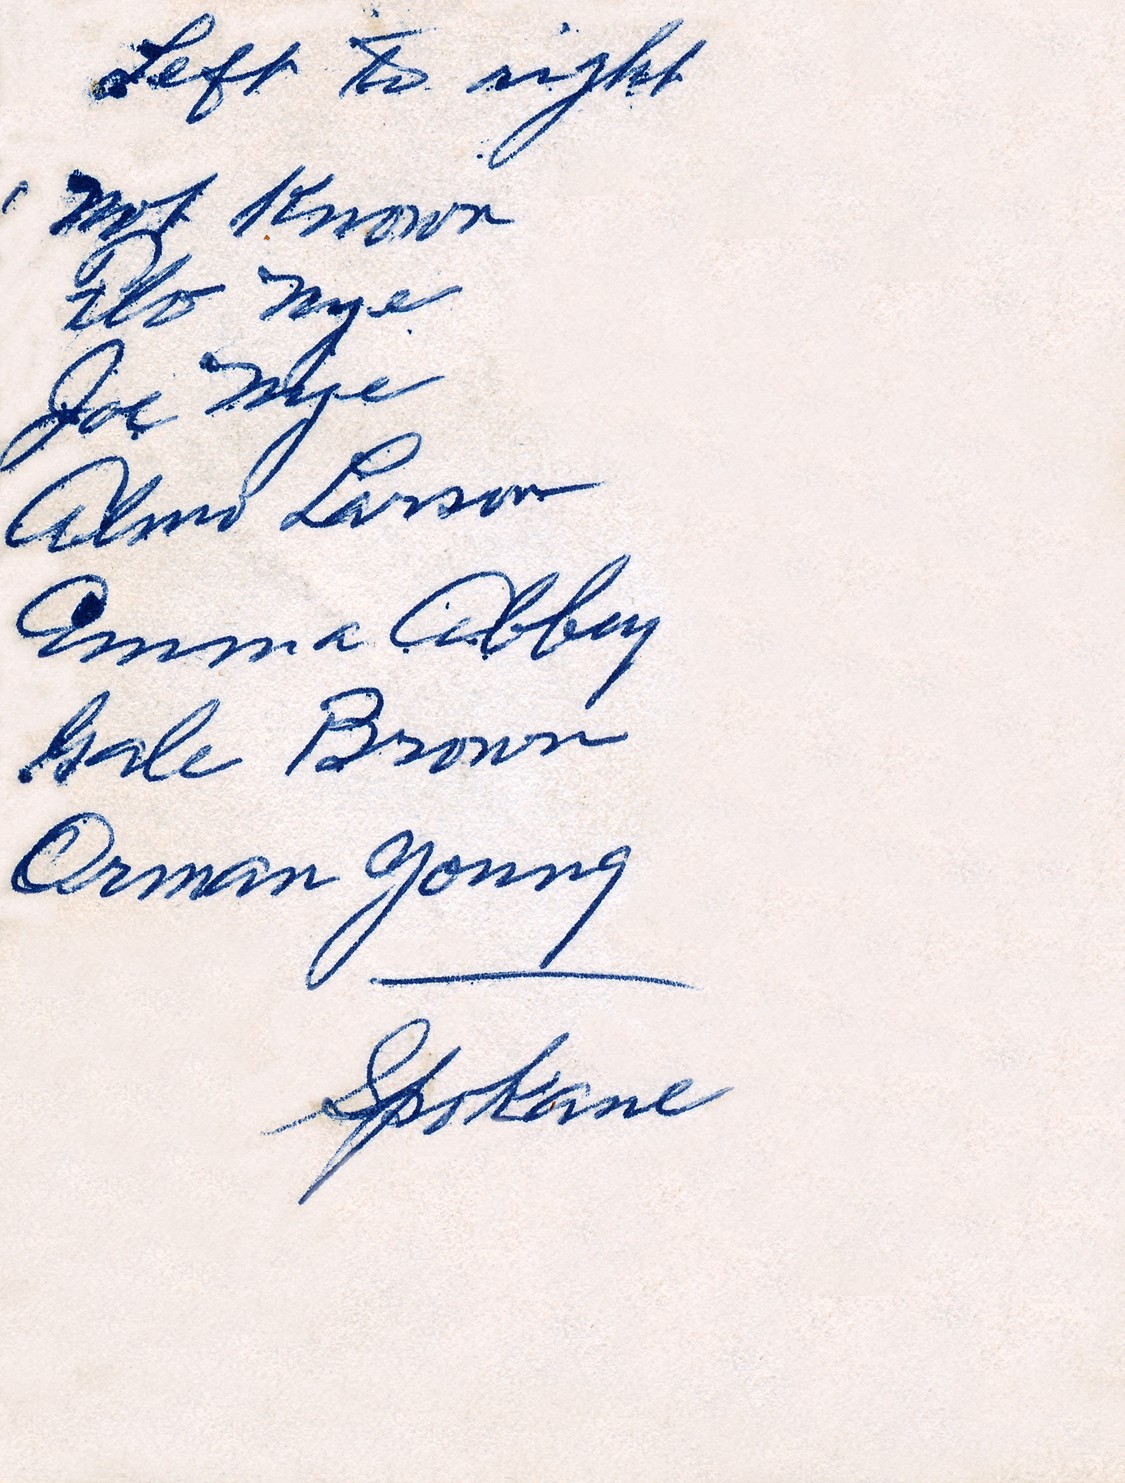 Left to right
Not Known
Flo Nye
Joe Nye
Almo Larson
Emma Abbey
Gale Brown
Orman Young
Spokane